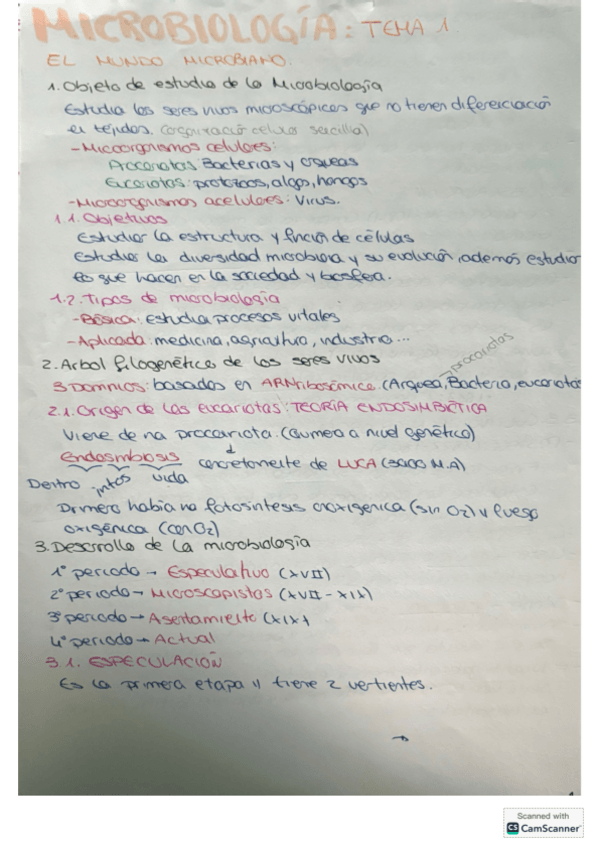 MICROBIOLOGÍA: TEMA 1
EL MUNDO MICROBIANO.
1. Objeto de estudio de la Microbiología
Estudia los seres vivos microscópicos que no tienen diferenciación
en tejidos. (organización celular sencilla)
- Microorganismos celulares:
Procariotas: Bacterias y arqueas
Eucariotas: protozoos, algas, hongos
- Microorganismos acelulares: Virus.
1.1. Objetivos
Estudiar la estructura y función de células
Estudiar la diversidad microbiana y su evolución, además estudio
lo que hacen en la sociedad y biosfera.
1.2. Tipos de microbiología
- Básica: estudia procesos vitales
- Aplicada: medicina, agricultura, industria...
2. Arbol filogenético de los seres vivos
→ procariotas
3 Dominios: basados en ARN ribosómico (Arquea, Bacteria, eucariotas
2.1. Origen de las eucariotas: TEORÍA ENDOSIMBIÓTICA
Viene de una procariota. (Aumento a nivel genético)
Endosimbiosis concretamente de LUCA (3800 M.A)
Dentro juntos vida
Primero había una fotosíntesis anoxigénica (sin O2) y luego
oxigénica (con O2)
3. Desarrollo de la microbiología
1º periodo → Especulativo (XVII)
2º periodo → Microscopistas (XVII - XIX)
3º periodo → Asentamiento (XIX)
4º periodo → Actual
3.1. ESPECULACIÓN
Es la primera etapa y tiene 2 vertientes.
→
Scanned with
CS CamScanner